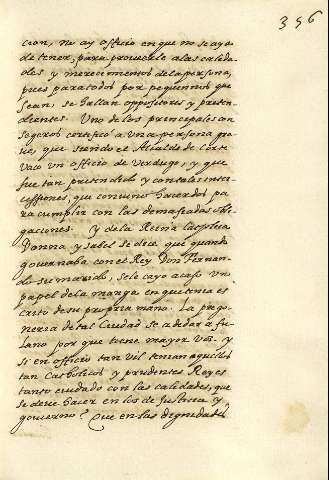 396
cion, no ay officio en que no se aya
de tener, para proveerle a las calida-
des y merecimientos de la persona,
pues para todos por pequeños que
sean, se hallan oppositores y preten-
dientes. Uno de los principales con
segeros certificó a una persona gra
ue, que siendo el Alcalde de Corte
vacó un officio de verdugo, y que
fue tan pretendido y con tales inter-
cessiones, que convino hacer dos pa
ra cumplir con las demasiadas obli
gaciones. Y de la Reina Catholica
Donna Ysabel se dice que quando
governaba con el Rey Don Fernan-
do su marido, se le cayo acaso un
papel de la manga en que tenia es
crito de su propria mano. La prego-
neria de tal Ciudad se a de dar a fu-
lano por que tiene mayor voz. y
si en officio tan vil tenian aquellos
tan Catholicos y prudentes Reyes
tanto cuidado con las calidades, que
se deve hacer en los de Justicia y
govierno? Que en las dignidades